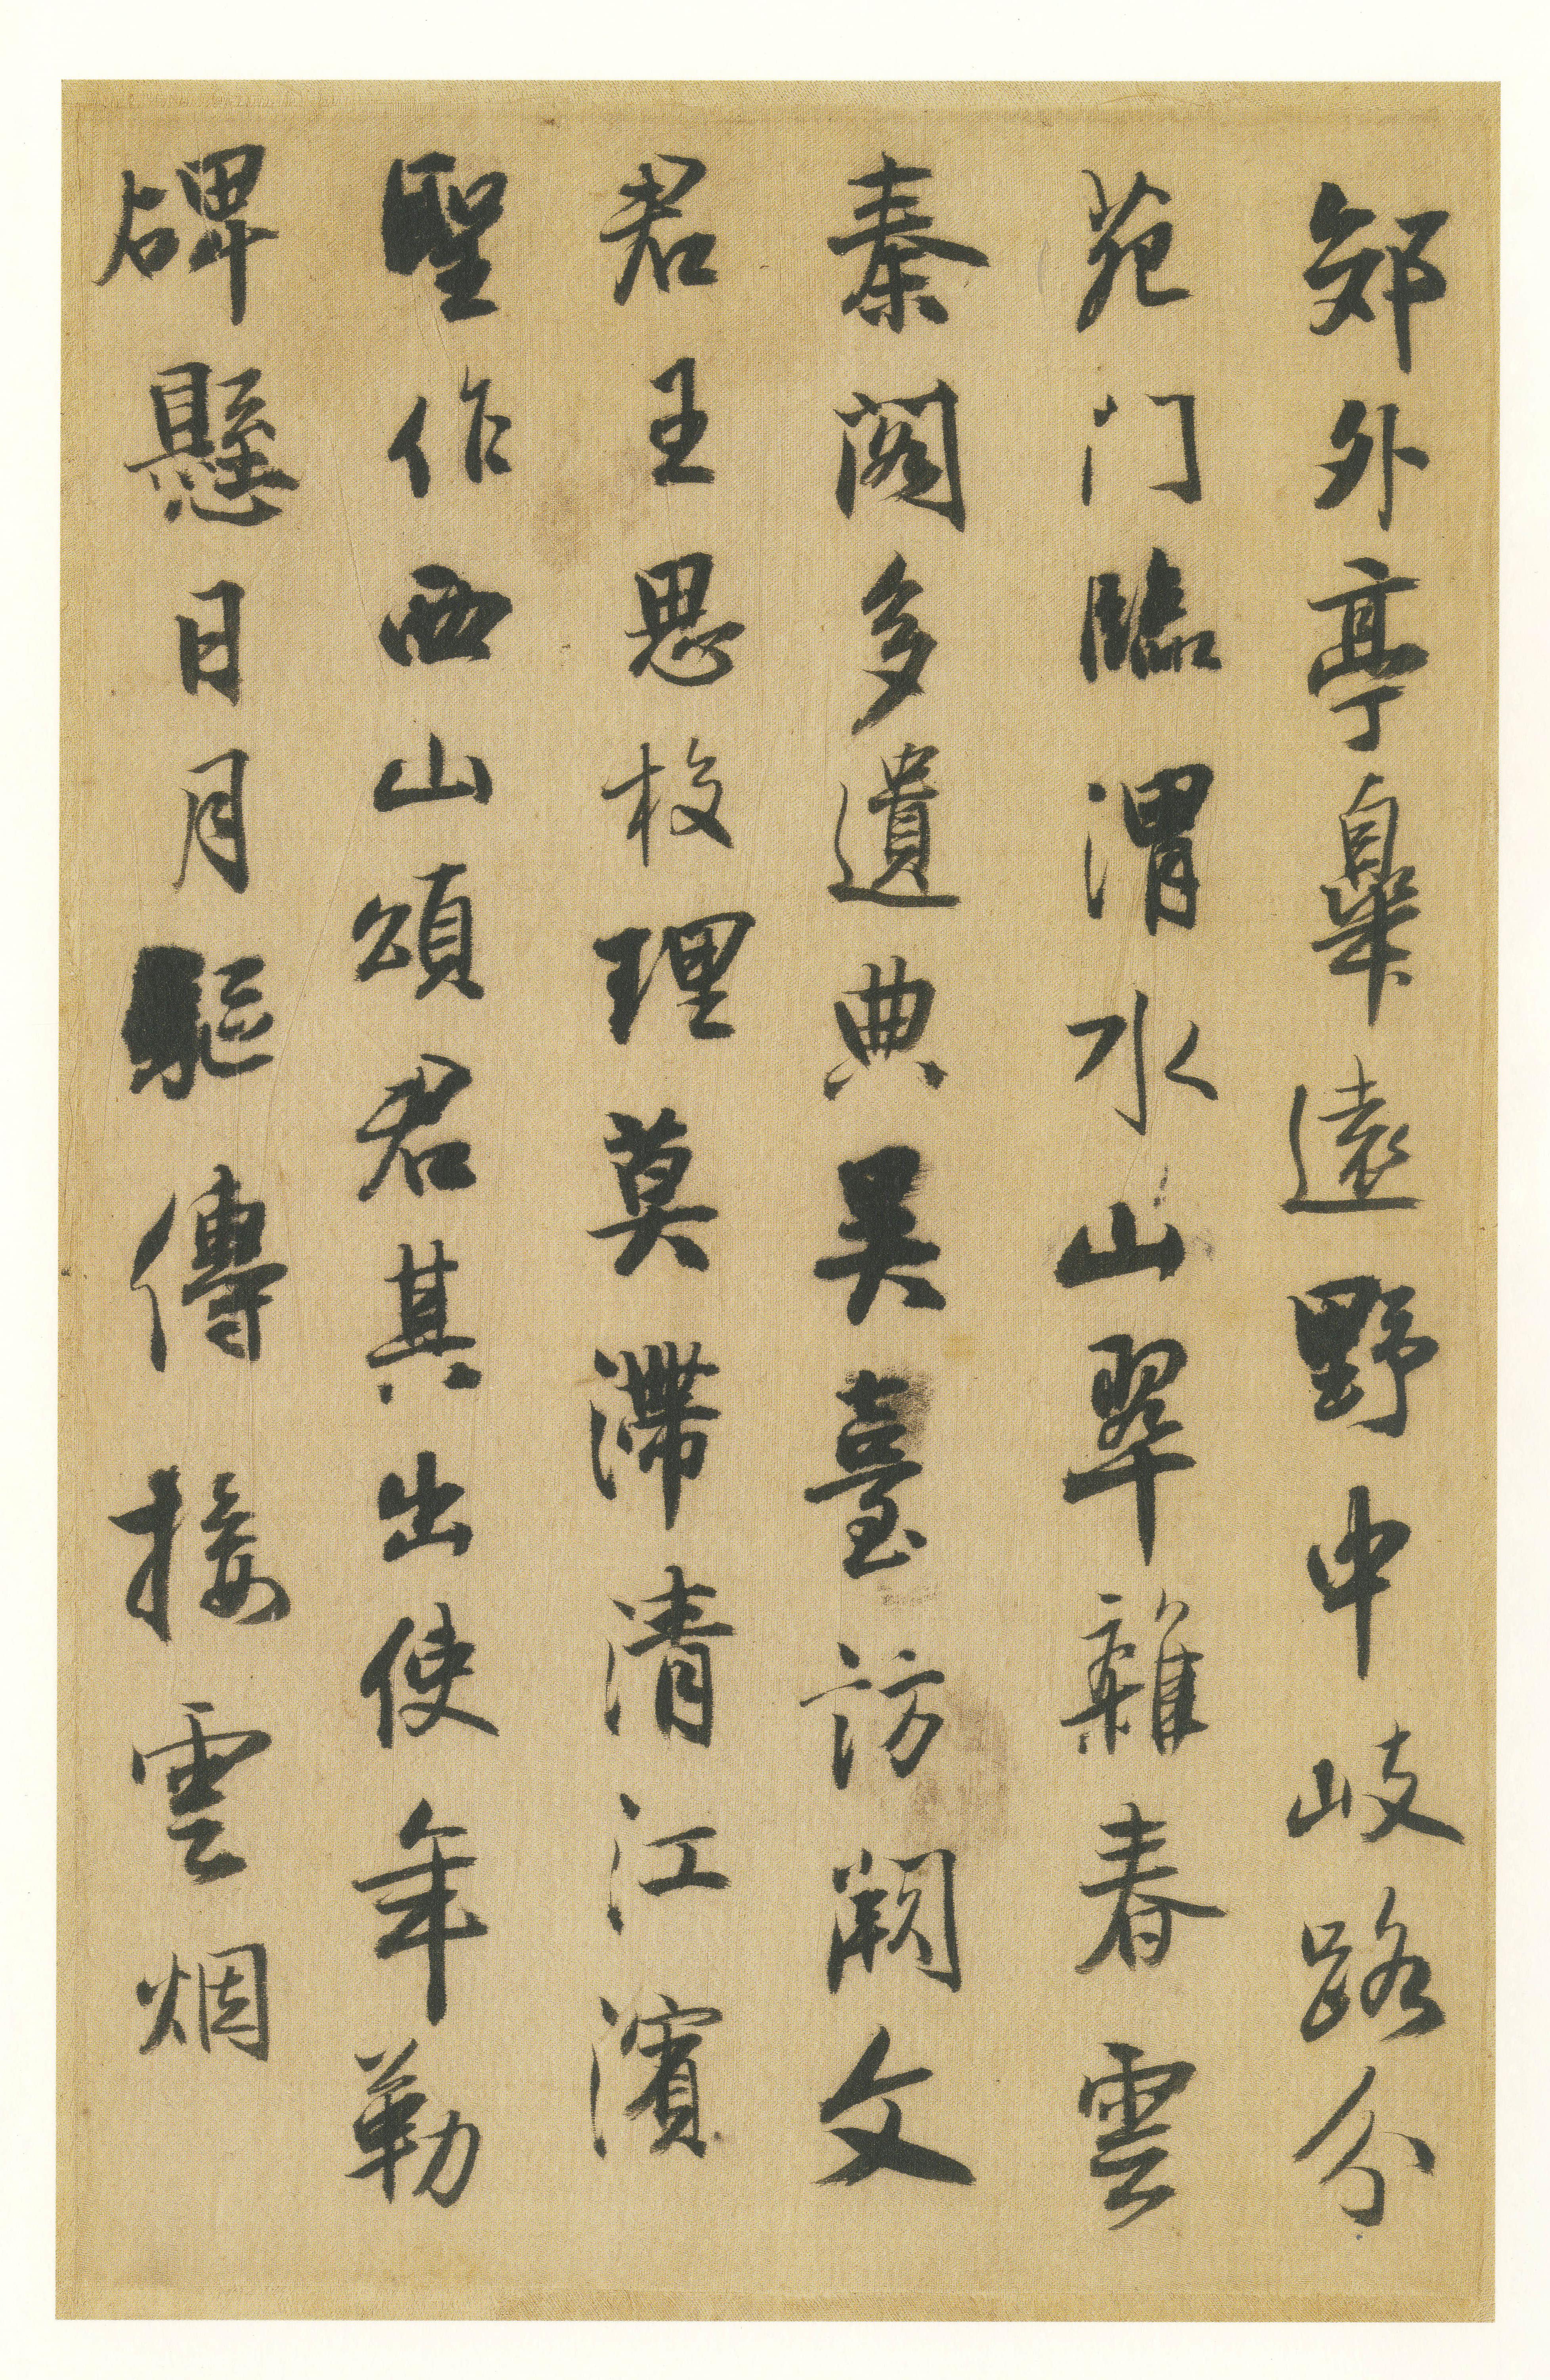 郊外亭皋遠野中岐路分
苑门臨渭水山翠雜春雲
秦阁多遺典吴臺訪闕文
君王思校理莫滯清江濱
聖作西山頌君其出使年勒
碑懸日月驅傳接雲烟